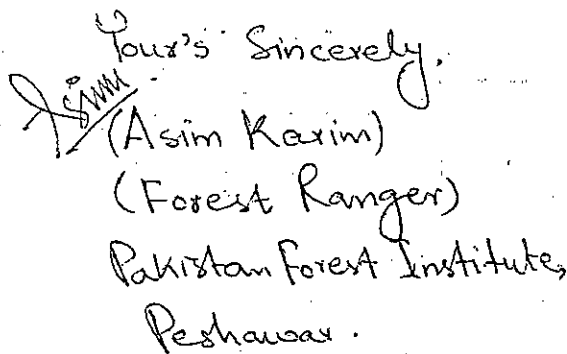 Your's Sincerely.
Asim
(Asim Karim)
(Forest Ranger)
Pakistan Forest Institute,
Peshawar.